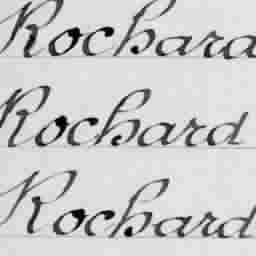 Rochard
Rochard
Rochard